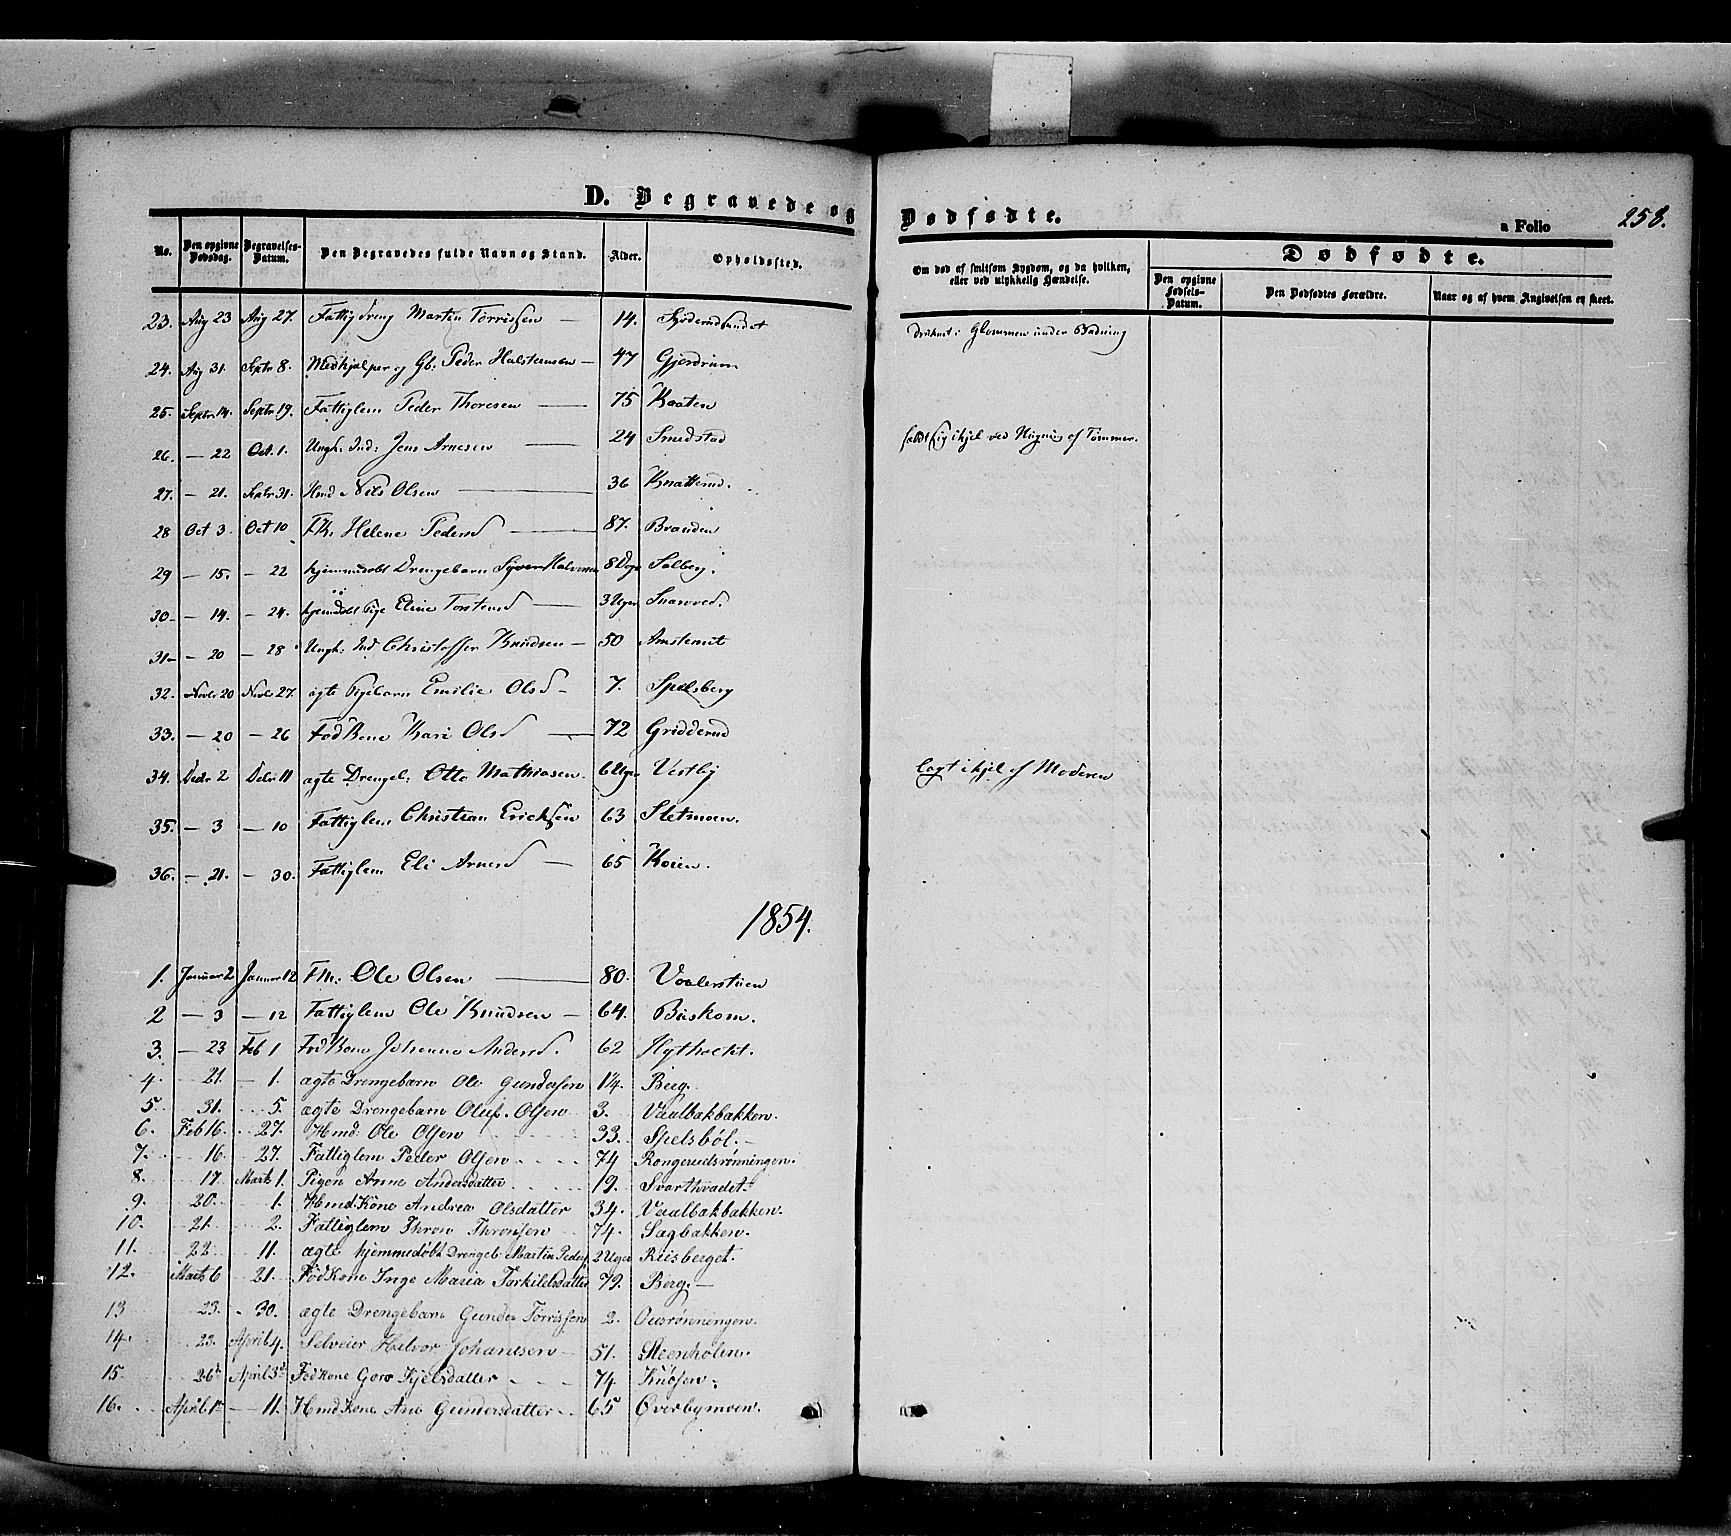 D. Begravede og Dødfødte.
a Folio 258.
No. Den opgivne Dødsdag. Begravelses-Datum. Den Begravedes fulde Navn og Stand. Alder. Opholdssted. Om død af smitsom Sygdom, og da hvilken, eller ved ulykkelig Hændelse. Dødfødte. Den opgivne Fødsels-Datum. Den Dødfødtes Forældre. Naar og af hvem Angivelsen er skeet.
23. Aug 23 Aug 27. Fattigdreng Martin Torrissen — 14. druknet i Glommen under Badning
24. Aug 31. Septr 8. Medhjælper og Gb. Peder Halstensen — 47 Gjerdrum
25. Septr 14. Septr 19. Fattiglem Peder Thoresen — 75 Kraaten
26. — 22 Oct. 1. Ungk: Ind: Jens Arnesen — 24 Smedstad faldt sig ihjel ved af Tømmer.
27. — 21. Septr 31. Hmd Nils Olsen — 36 Knatterud.
28 Oct 3. Oct 10 Fk. Helene Pedersd — 87. Branden
29 — 15. — 22 hjemmedøbt Drengebarn Syver Halvorsen 8 Dge Solberg.
30 — 14. — 24. hjemdøbt Pige Eline Torstensd — 3 Uger Snarved.
31 — 20 — 28 Ungk: Ind Christoffer Knudsen — 50
32. Novbr 20 Novbr 27. ægte Pigebarn Emilie Olsd — 7. Spelsberg
33. — 20 — 26 Fød Kone Kari Olsd — 72 Gridderud
34. Decbr 2 Decbr 11 ægte Drengeb: Otto Mathiasen 6 Uger Vestby lagt ihjel af Moderen
35. — 3 — 10 Fattiglem Christian Ericksen 63 Sletmoen.
36. — 21. — 30. Fattiglem Eli Arnesd — 65 Koien.
1854.
1. Januar 2 Januar 12 Fm: Ole Olsen — 80. Vaalerstuen
2 — 3 — 12 Fattiglem Ole Knudsen — 64. Buskom.
3. — 23 Feb 1 Fød Kone Johanne Andersd. 62 Flythocht.
4. 21. — 1. ægte Drengebarn Ole Gundersen 14. Berg.
5. 31. 5. ægte Drengebarn Oluf Olsen 3. Vaalbakbakken.
6. Feb 16. 27. Hmd: Ole Olsen 33. Spelsböl. —
7. 16. 27. Fattiglem Peder Olsen 74 Rongerudsrønningen.
8. 17 Marts 1. Pigen Anne Andersdatter 19. Svarthvadet.
9. 20. 1. Hmd. Kone Andrea Olsdatter 34. Vaalbakbakken.
10. 21. 2. Fattiglem Thron Thronsen 74. Sagbakken.
11. 22 11. ægte hjemmedøbt Drengeb: Martin Peders 2 Uger Riisberget.
12. Marts 6 21. Fødkone Inge Maria Torkildsdatter 79. Berg. —
13 23. 30. ægte Drengebarn Gunder Torrissen 2. Ousrønningen.
14. 23. April 4. Selveier Halvor Johannesen — 51. Steenholen.
15 26 April 3 Fødkone Goro Kjelsdatter 74 Knösen.
16. April 1 — 11. Hmd Kone Ane Gundersdatter 65 Øverbymoen.